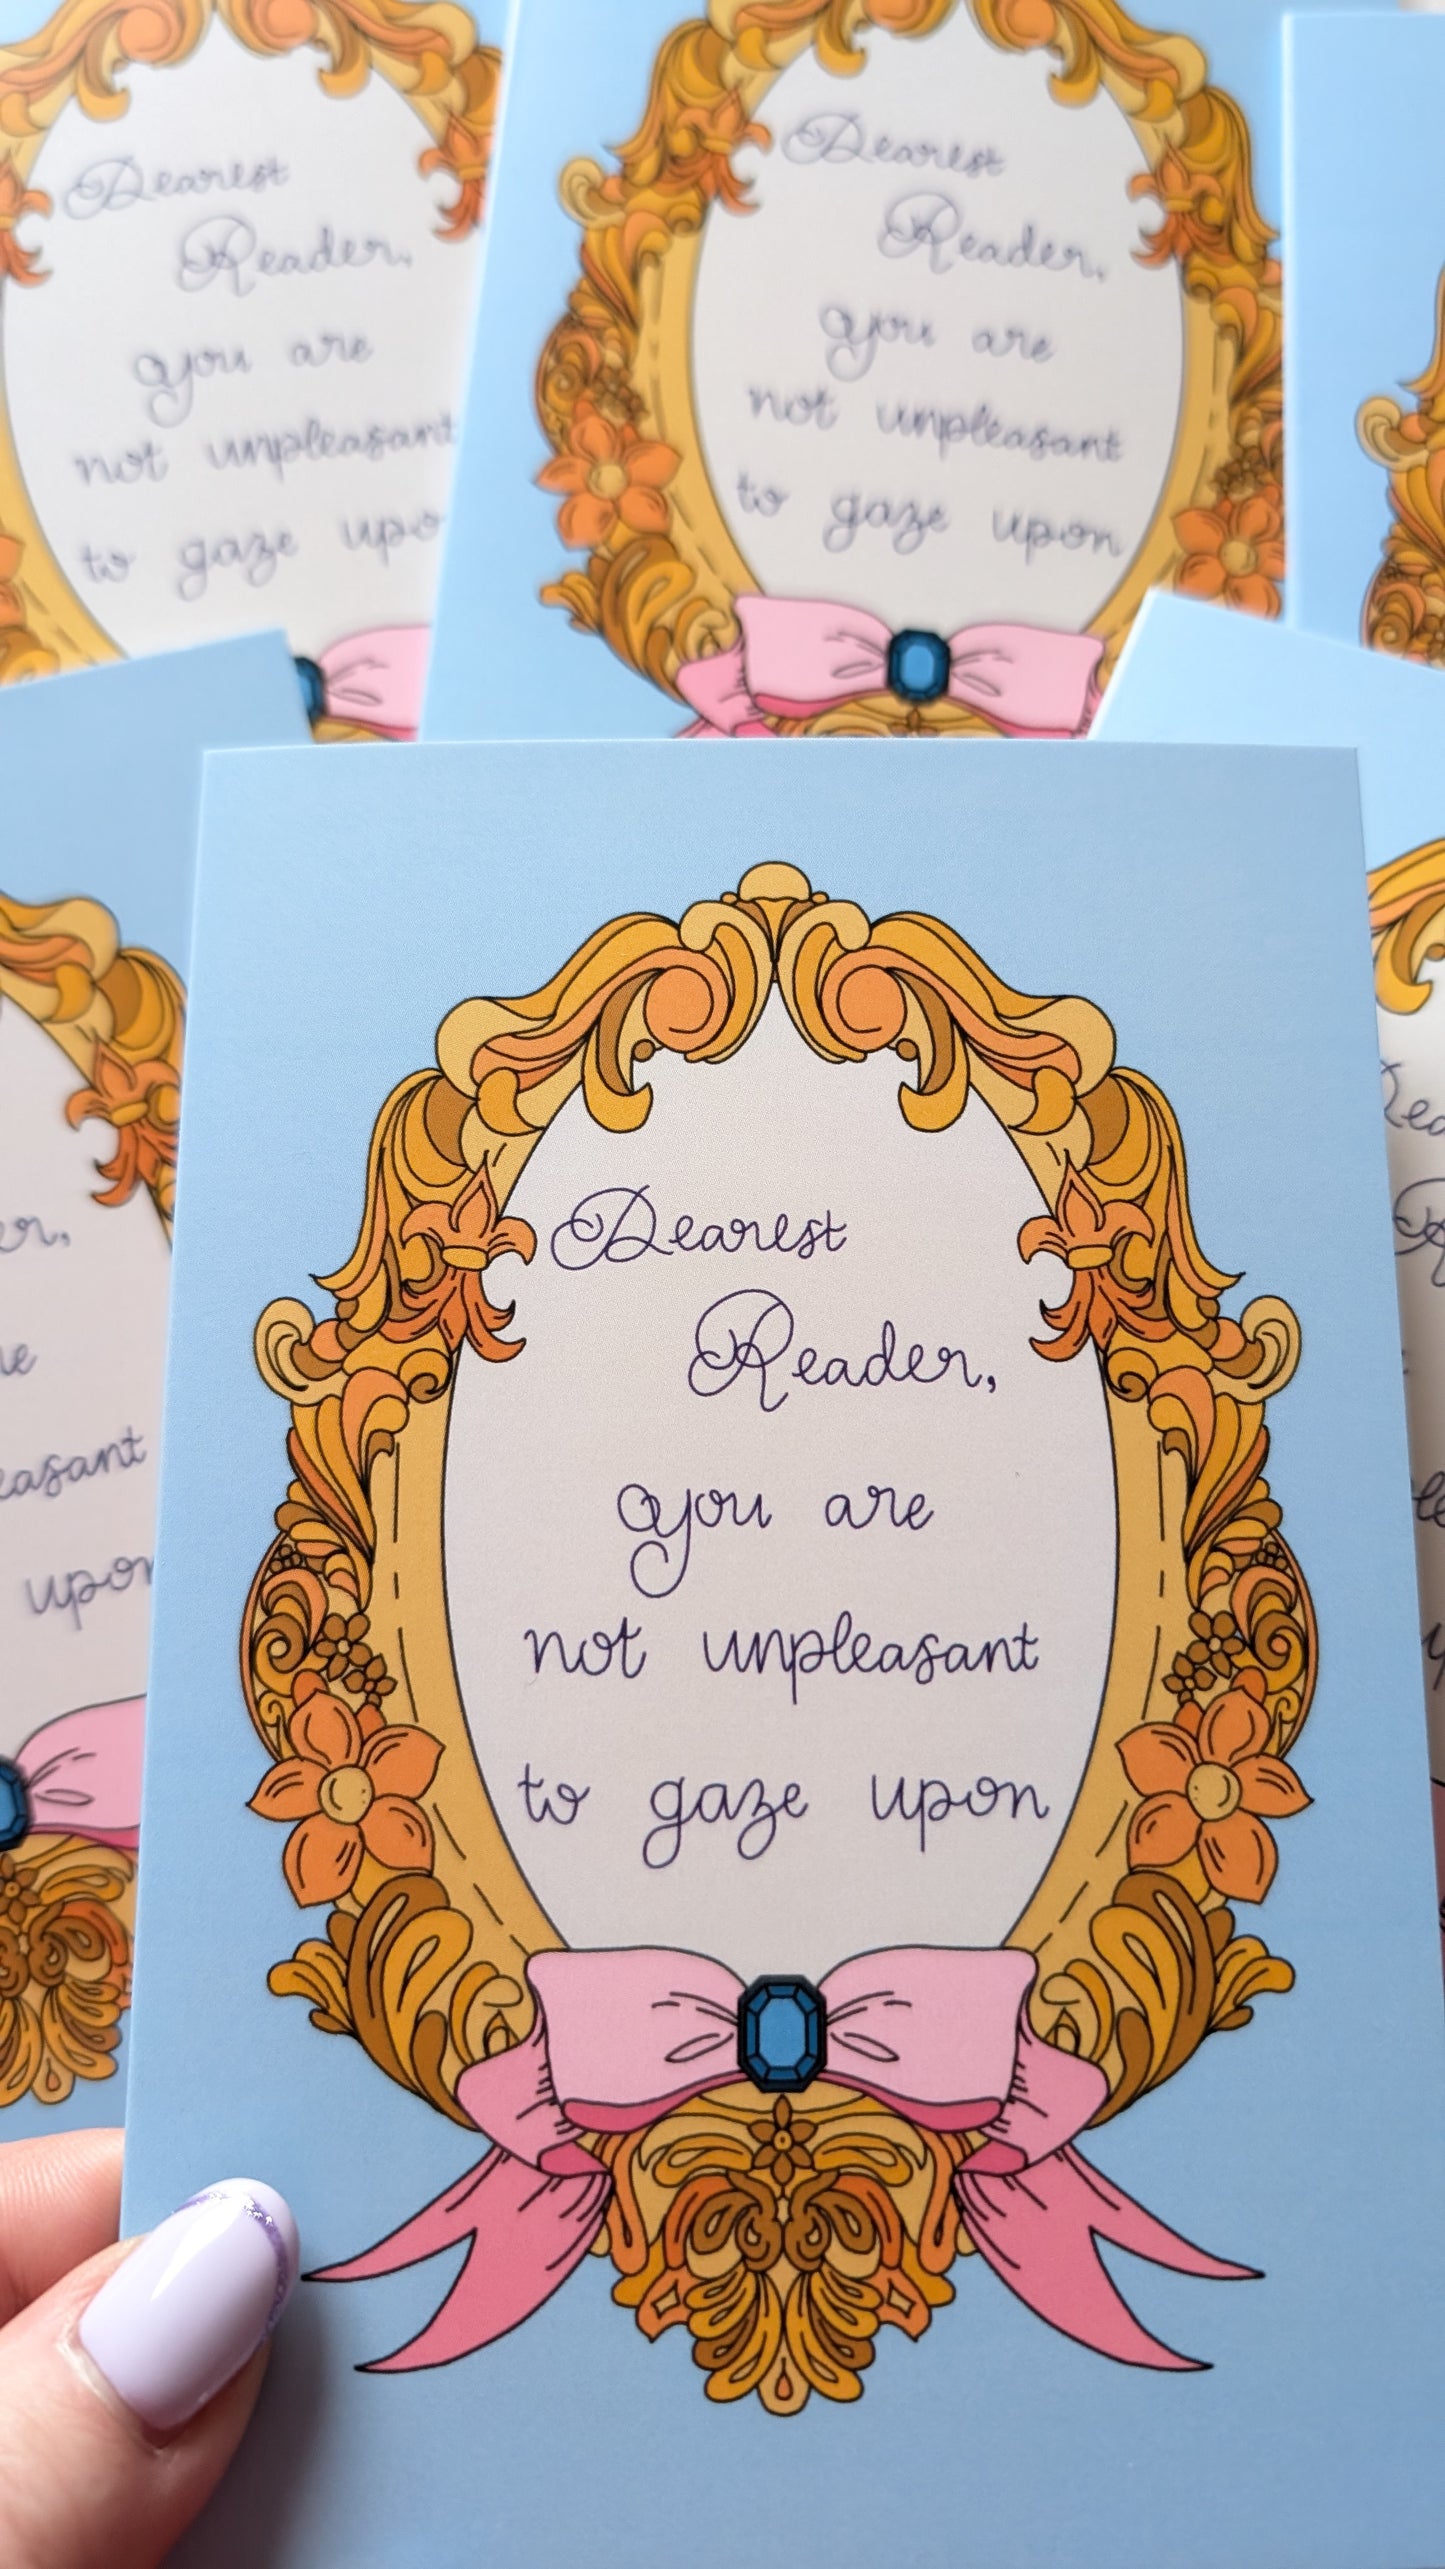 Dearest
Reader,
you are
not unpleasant
to gaze upon
Dearest
Reader,
you are
not unpleasant
to gaze upon
er,
easant
upon
Dearest
Reader,
you are
not unpleasant
to gaze upon